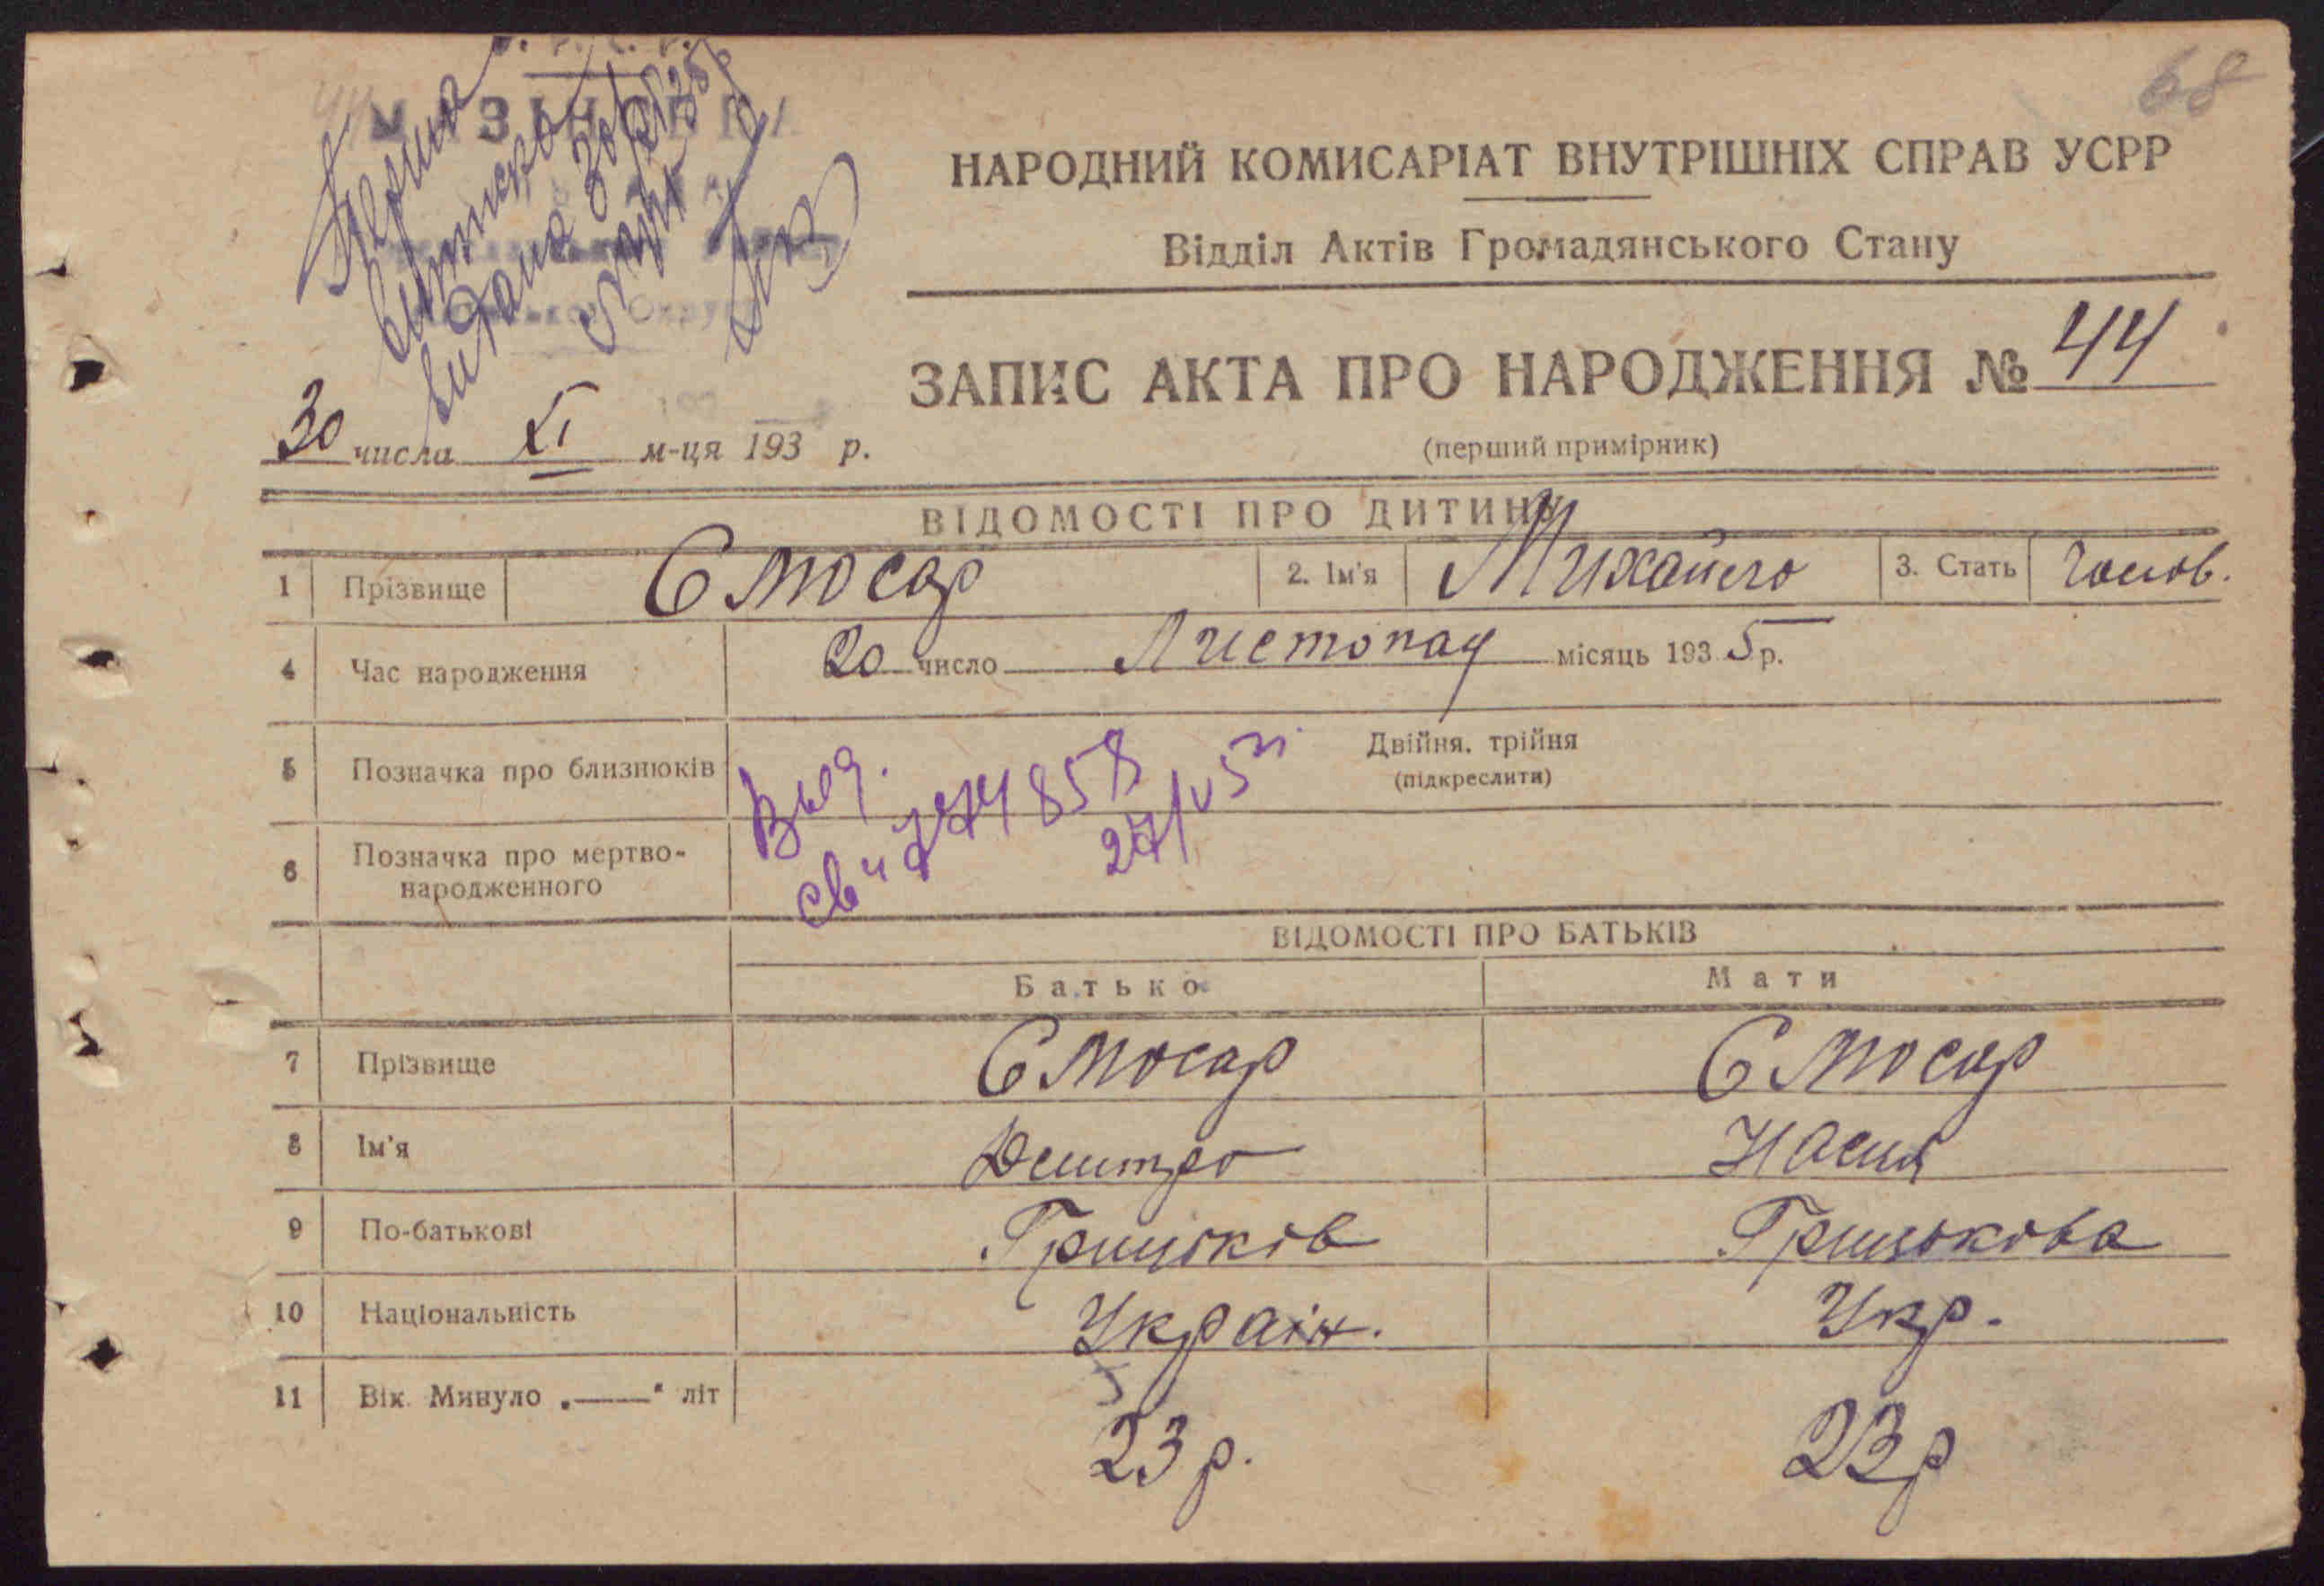 68
НАРОДНИЙ КОМИСАРІАТ ВНУТРІШНІХ СПРАВ УСРР
Відділ Актів Громадянського Стану
ЗАПИС АКТА ПРО НАРОДЖЕННЯ № 44
(перший примірник)
30 числа XI м-ця 193 р.
ВІДОМОСТІ ПРО ДИТИНУ
1 Прізвище Слюсар 2. Ім'я Михайло 3. Стать чолов.
4 Час народження 20 число Листопад місяць 1935 р.
5 Позначка про близнюків Двійня, трійня
(підкреслити)
Выд.
27/V
6 Позначка про мертво-
народженного
ВІДОМОСТІ ПРО БАТЬКІВ
Батько Мати
7 Прізвище Слюсар Слюсар
8 Ім'я Дмитро Настя
9 По-батькові Грицьков Грицькова
10 Національність Україн. Укр.
11 Вік. Минуло „——“ літ 23 р. 23 р